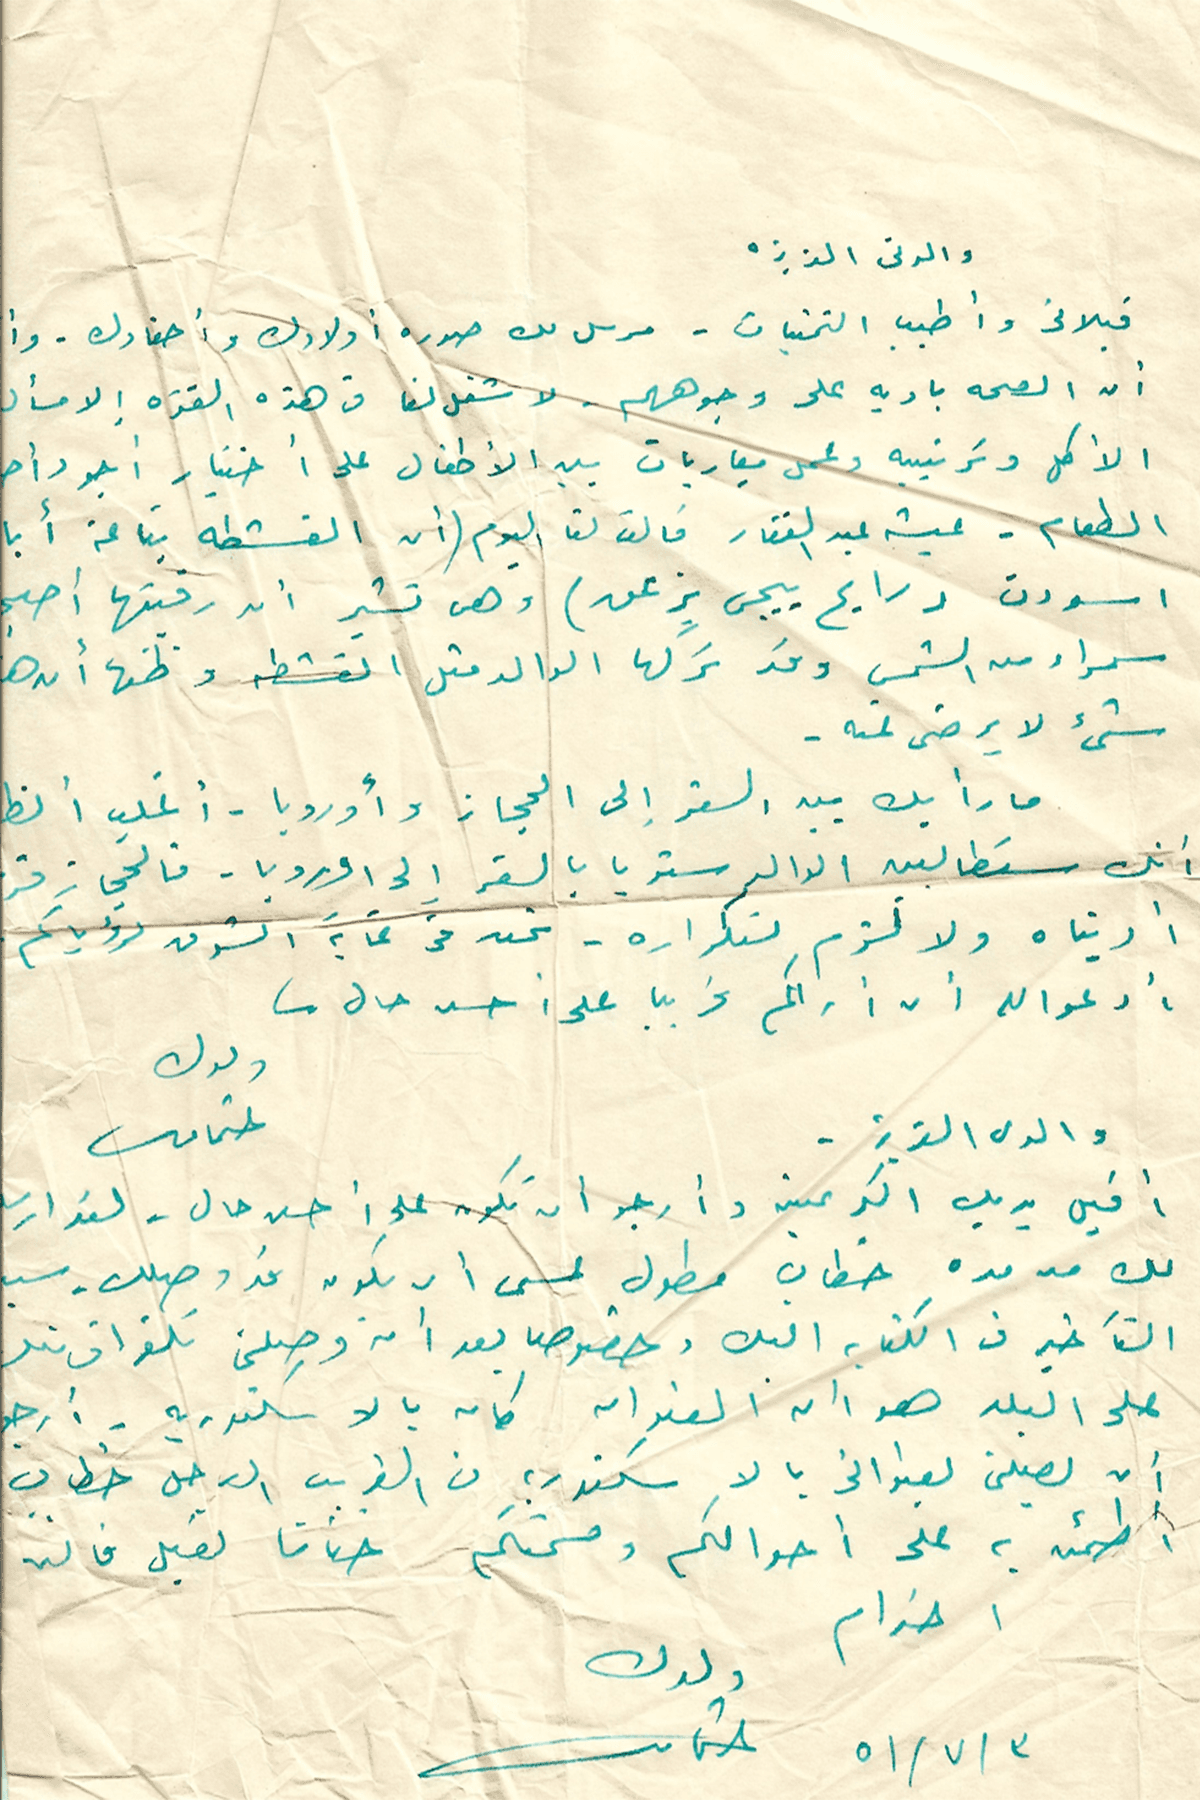 والدتى العزيزه
قبلاتى وأطيب التمنيات - مرسل لك صوره أولادك وأحفادك - وأ
أن الصحه باديه على وجوههم - لا شغل لنا فى هذه الفتره إلا مسأل
الأكل وترتيبه وعمل مباريات بين الأطفال على أختيار أجود
الطعام - عيشه عبد الغفار قالت لنا اليوم (أن القشطه بتاعة أبا
اسودت ورايح ييجى يزعق) وهى تشير أن رقبتها أصبح
سمراء من الشمس وقد تركها الوالد مثل القشطه وظنها أن هذ
شئ لا يرضى عنه -
ما رأيك بين السفر إلى الحجاز وأوروبا - أغلب الظ
أنك ستطالبين الوالد سنويا بالسفر إلى اوروبا - فالحجاز
أديناه ولا لزوم لتكراره - نحن فى غاية الشوق لرؤياكم
أدعو الله أن أراكم قريبا على أحسن حال
ولدك
عثمان
والدى العزيز -
أقبل يديك الكريمتين وأرجو أن تكون على أحسن حال - لقد ارسل
لك من مده خطاب مطول عسى أن يكون قد وصلك - سب
التأخير فى الكتابه اليك وخصوصا بعد أن وصلنى تلغراف
على البلد هو أن العنوان كان بالاسكندريه - أرجو
أن يصلنى بعنوانى بالاسكندريه فى القريب العاجل خطاب
أطمئن به على أحوالكم وصحتكم ختاما تقبل فائق
احترام
ولدك
عثمان
٥١/٧/٣